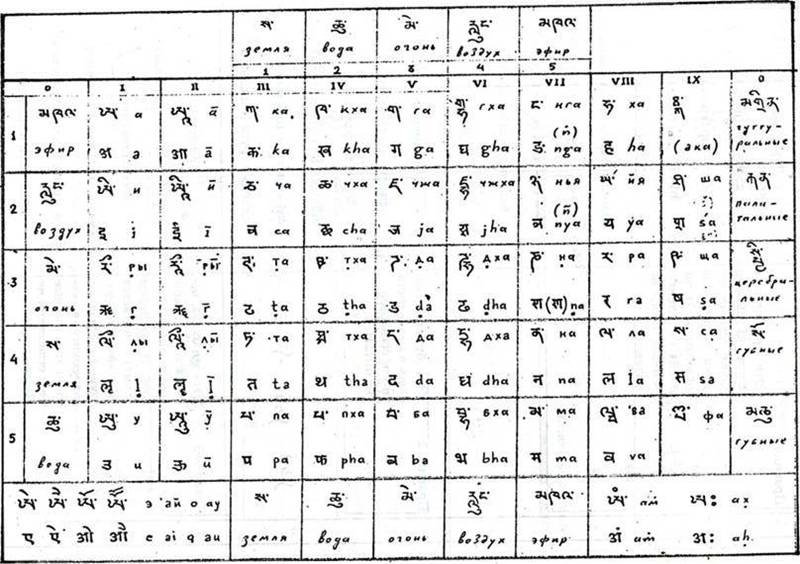 ས་ ཆུ་ མེ་ རླུང་ མཁའ་
земля вода огонь воздух эфир
1 2 3 4 5
0 I II III IV V VI VII VIII IX 0
1 མཁའ་ ཨ་ а ཨཱ་ ā ཀ་ ка ཁ་ кха ག་ га གྷ་ гха ང་ нга ཧ་ ха ཀྵ་ མགྲིན་
(ṅ) гутту-
эфир अ a आ ā क ka ख kha ग ga घ gha ङ nga ह ha (ака) ральные
2 རླུང་ ཨི་ и ཨཱི་ ӣ ཅ་ ча ཆ་ чха ཇ་ чжа ཇྷ་ чжха ཉ་ нья ཡ་ йя ཤ་ ша རྐན་
(ñ) пала-
воздух इ i ई ī च ca छ cha ज ja झ jha ञ nya य ya श śa тальные
3 མེ་ རྀ་ ры རཱྀ་ ры̄ ཊ་ та ཋ་ тха ཌ་ да ཌྷ་ дха ཎ་ на ར་ ра ཥ་ ша ལྕེ་
церебра-
огонь ऋ ṛ ॠ ṝ ट ṭa ठ ṭha ड ḍa ढ ḍha ण ṇa र ra ष ṣa льные
4 ས་ ལྀ་ лы ལཱྀ་ лы̄ ཏ་ та ཐ་ тха ད་ да དྷ་ дха ན་ на ལ་ ла ས་ са སོ་
земля ऌ ḷ ॡ ḹ त ta थ tha द da ध dha न na ल la स sa губные
5 ཆུ་ ཨུ་ у ཨཱུ་ ӯ པ་ па ཕ་ пха བ་ ба བྷ་ бха མ་ ма ва фа མཆུ་
вода उ u ऊ ū प pa फ pha ब ba भ bha म ma व va губные
ཨེ་ ཨཻ་ ཨོ་ ཨཽ་ э ай о ау ས་ ཆུ་ མེ་ རླུང་ མཁའ་ ཨཾ་ ам ཨཿ ах
ए ऐ ओ औ e ai o au земля вода огонь воздух эфир अं aṁ अः aḥ